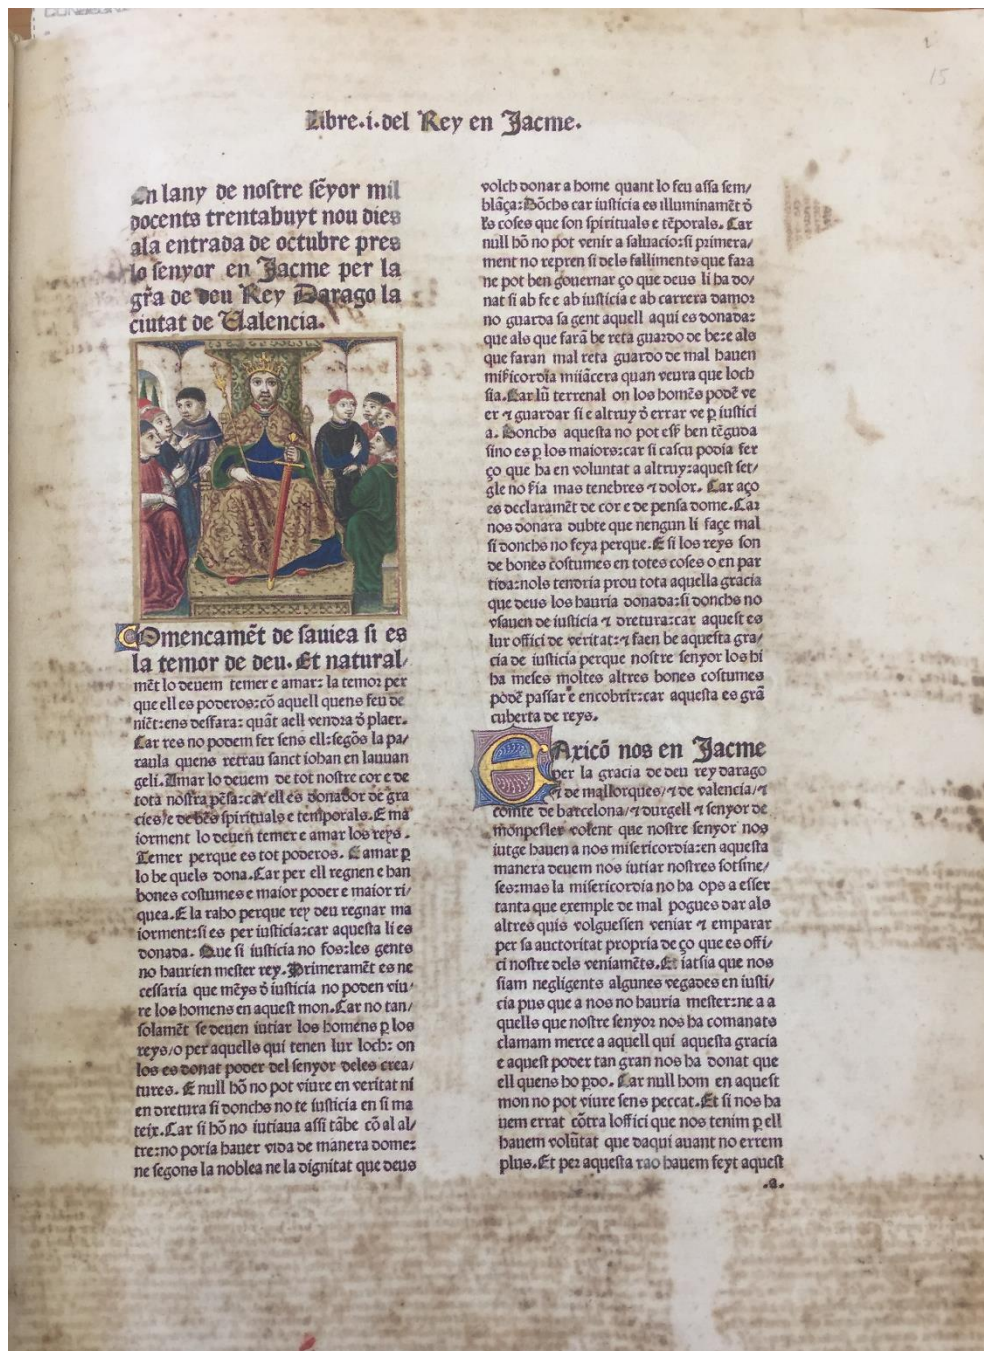 Libre.i.del Rey en Jacme.
15
En lany de nostre sẽyor mil
docents trentahuyt nou dies
ala entrada de octubre pres
lo senyor en Jacme per la
gr̃a de deu Rey Darago la
ciutat de Ualencia.
COmencamẽt de sauiea si es
la temor de deu. Et natural/
mẽt lo deuem temer e amar: la temor per
que ell es poderos: cõ aquell quens feu de
niẽt: ens desfara: quãt a ell vendra d̓ plaer.
Car res no podem fer sens ell: segõs la pa/
raula quens retrau sanct iohan en lauuan
geli. Amar lo deuem de tot nostre cor e de
tota nostra pẽsa: car ell es donador de gra
cies/e de bẽs spirituals e temporals. E ma
iorment lo deuen temer e amar los reys.
Temer perque es tot poderos. E amar ꝑ
lo be quels dona. Car per ell regnen e han
bones costumes e maior poder e maior ri/
quea. E la raho perque rey deu regnar ma
iorment: si es per iusticia: car aquesta li es
donada. Que si iusticia no fos: les gents
no haurien mester rey. Primeramẽt es ne
cessaria que mẽys d̓ iusticia no poden viu/
re los homens en aquest mon. Car no tan/
solamẽt se deuen iutiar los homens ꝑ los
reys/o per aquells qui tenen lur loch: on
los es donat poder del senyor deles crea/
tures. E null hõ no pot viure en veritat ni
en dretura si donchs no te iusticia en si ma
teix. Car si hõ no iutiaua assi tãbe cõ al al/
tre: no poria hauer vida de manera dome:
ne segons la noblea ne la dignitat que deus
volch donar a home quant lo feu assa sem/
blãça: Dõchs car iusticia es illuminamẽt d̓
les coses que son spirituals e tẽporals. Car
null hõ no pot venir a saluacio: si primera/
ment no repren si dels falliments que fara
ne pot ben gouernar ço que deus li ha do/
nat si ab fe e ab iusticia e ab carrera damor
no guarda sa gent aquell aqui es donada:
que als que farã be reta guardo de be: e als
que faran mal reta guardo de mal hauen
mis̓icordia miiãcera quan veura que loch
sia. Car lũ terrenal on los homẽs podẽ ve
er ⁊ guardar si e altruy d̓ errar ve ꝑ iustici
a. Donchs aquesta no pot ess̓ ben tẽguda
sino es ꝑ los maiors: car si cascu podia fer
ço que ha en voluntat a altruy: aquest set/
gle no s̓ia mas tenebres ⁊ dolor. Car aço
es declaramẽt de cor e de pensa dome. Car
nos donara dubte que nengun li façe mal
si donchs no feya perque. E si los reys son
de bones costumes en totes coses o en par
tida: nols tendria prou tota aquella gracia
que deus los hauria donada: si donchs no
vsauen de iusticia ⁊ dretura: car aquest es
lur offici de veritat: ⁊ faen be aquesta gra/
cia de iusticia perque nostre senyor los hi
ha meses moltes altres bones costumes
podẽ passar e encobrir: car aquesta es grã
cuberta de reys.
EAxicõ nos en Jacme
per la gracia de deu rey darago
⁊ de mallorques/⁊ de valencia/⁊
comte de barcelona/⁊ durgell ⁊ senyor de
monpesler volent que nostre senyor nos
iutge hauen a nos misericordia: en aquesta
manera deuem nos iutiar nostres sotsme/
ses: mas la misericordia no ha ops a esser
tanta que exemple de mal pogues dar als
altres quis volguessen veniar ⁊ emparar
per sa auctoritat propria de ço que es offi/
ci nostre dels veniamẽts. Et iatsia que nos
siam negligents algunes vegades en iusti/
cia pus que a nos no hauria mester: ne a a
quells que nostre senyor nos ha comanats
clamam merce a aquell qui aquesta gracia
e aquest poder tan gran nos ha donat que
ell quens ho ꝑdo. Car null hom en aquest
mon no pot viure sens peccat. Et si nos ha
uem errat cõtra loffici que nos tenim ꝑ ell
hauem volũtat que daqui auant no errem
plus. Et per aquesta rao hauem feyt aquest
.a.